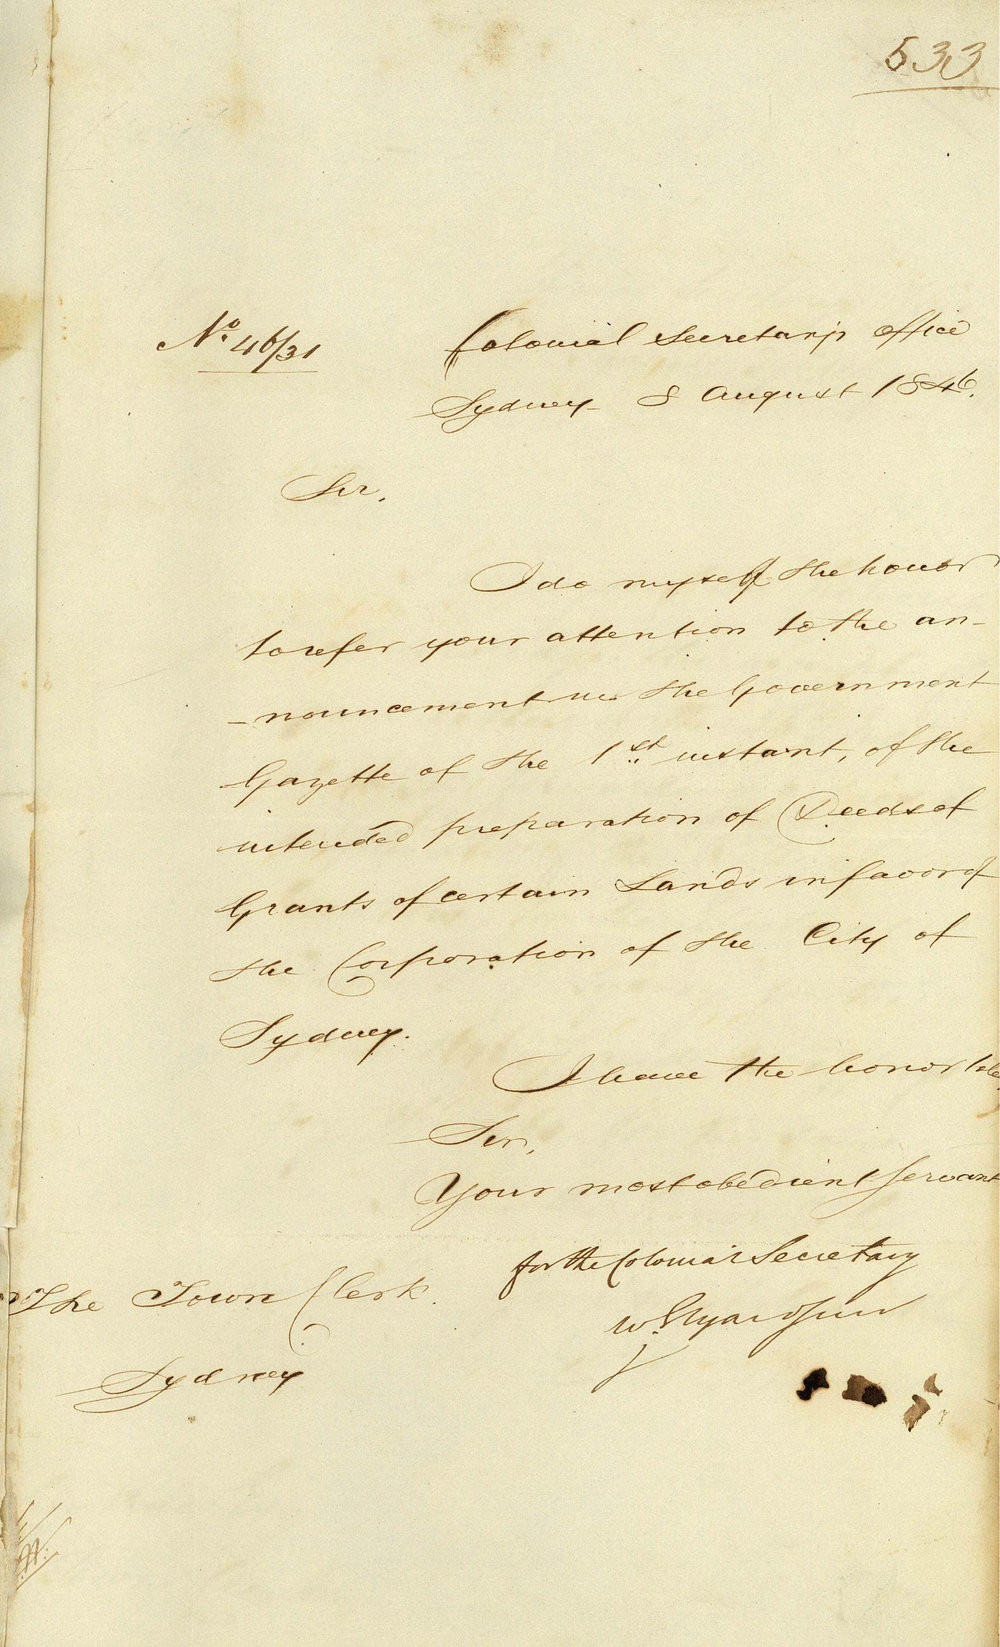 533
No. 46/31
Colonial Secretary's Office
Sydney 8 August 1846.
Sir,
I do myself the honor
to refer your attention to the an-
-nouncement in the Government
Gazette of the 1st instant, of the
intended preparation of Deeds of
Grants of certain Lands in favor of
the Corporation of the City of
Sydney.
I have the honor to be,
Sir,
Your most obedient Servant
for the Colonial Secretary
W. Elyard Junr
The Town Clerk.
Sydney